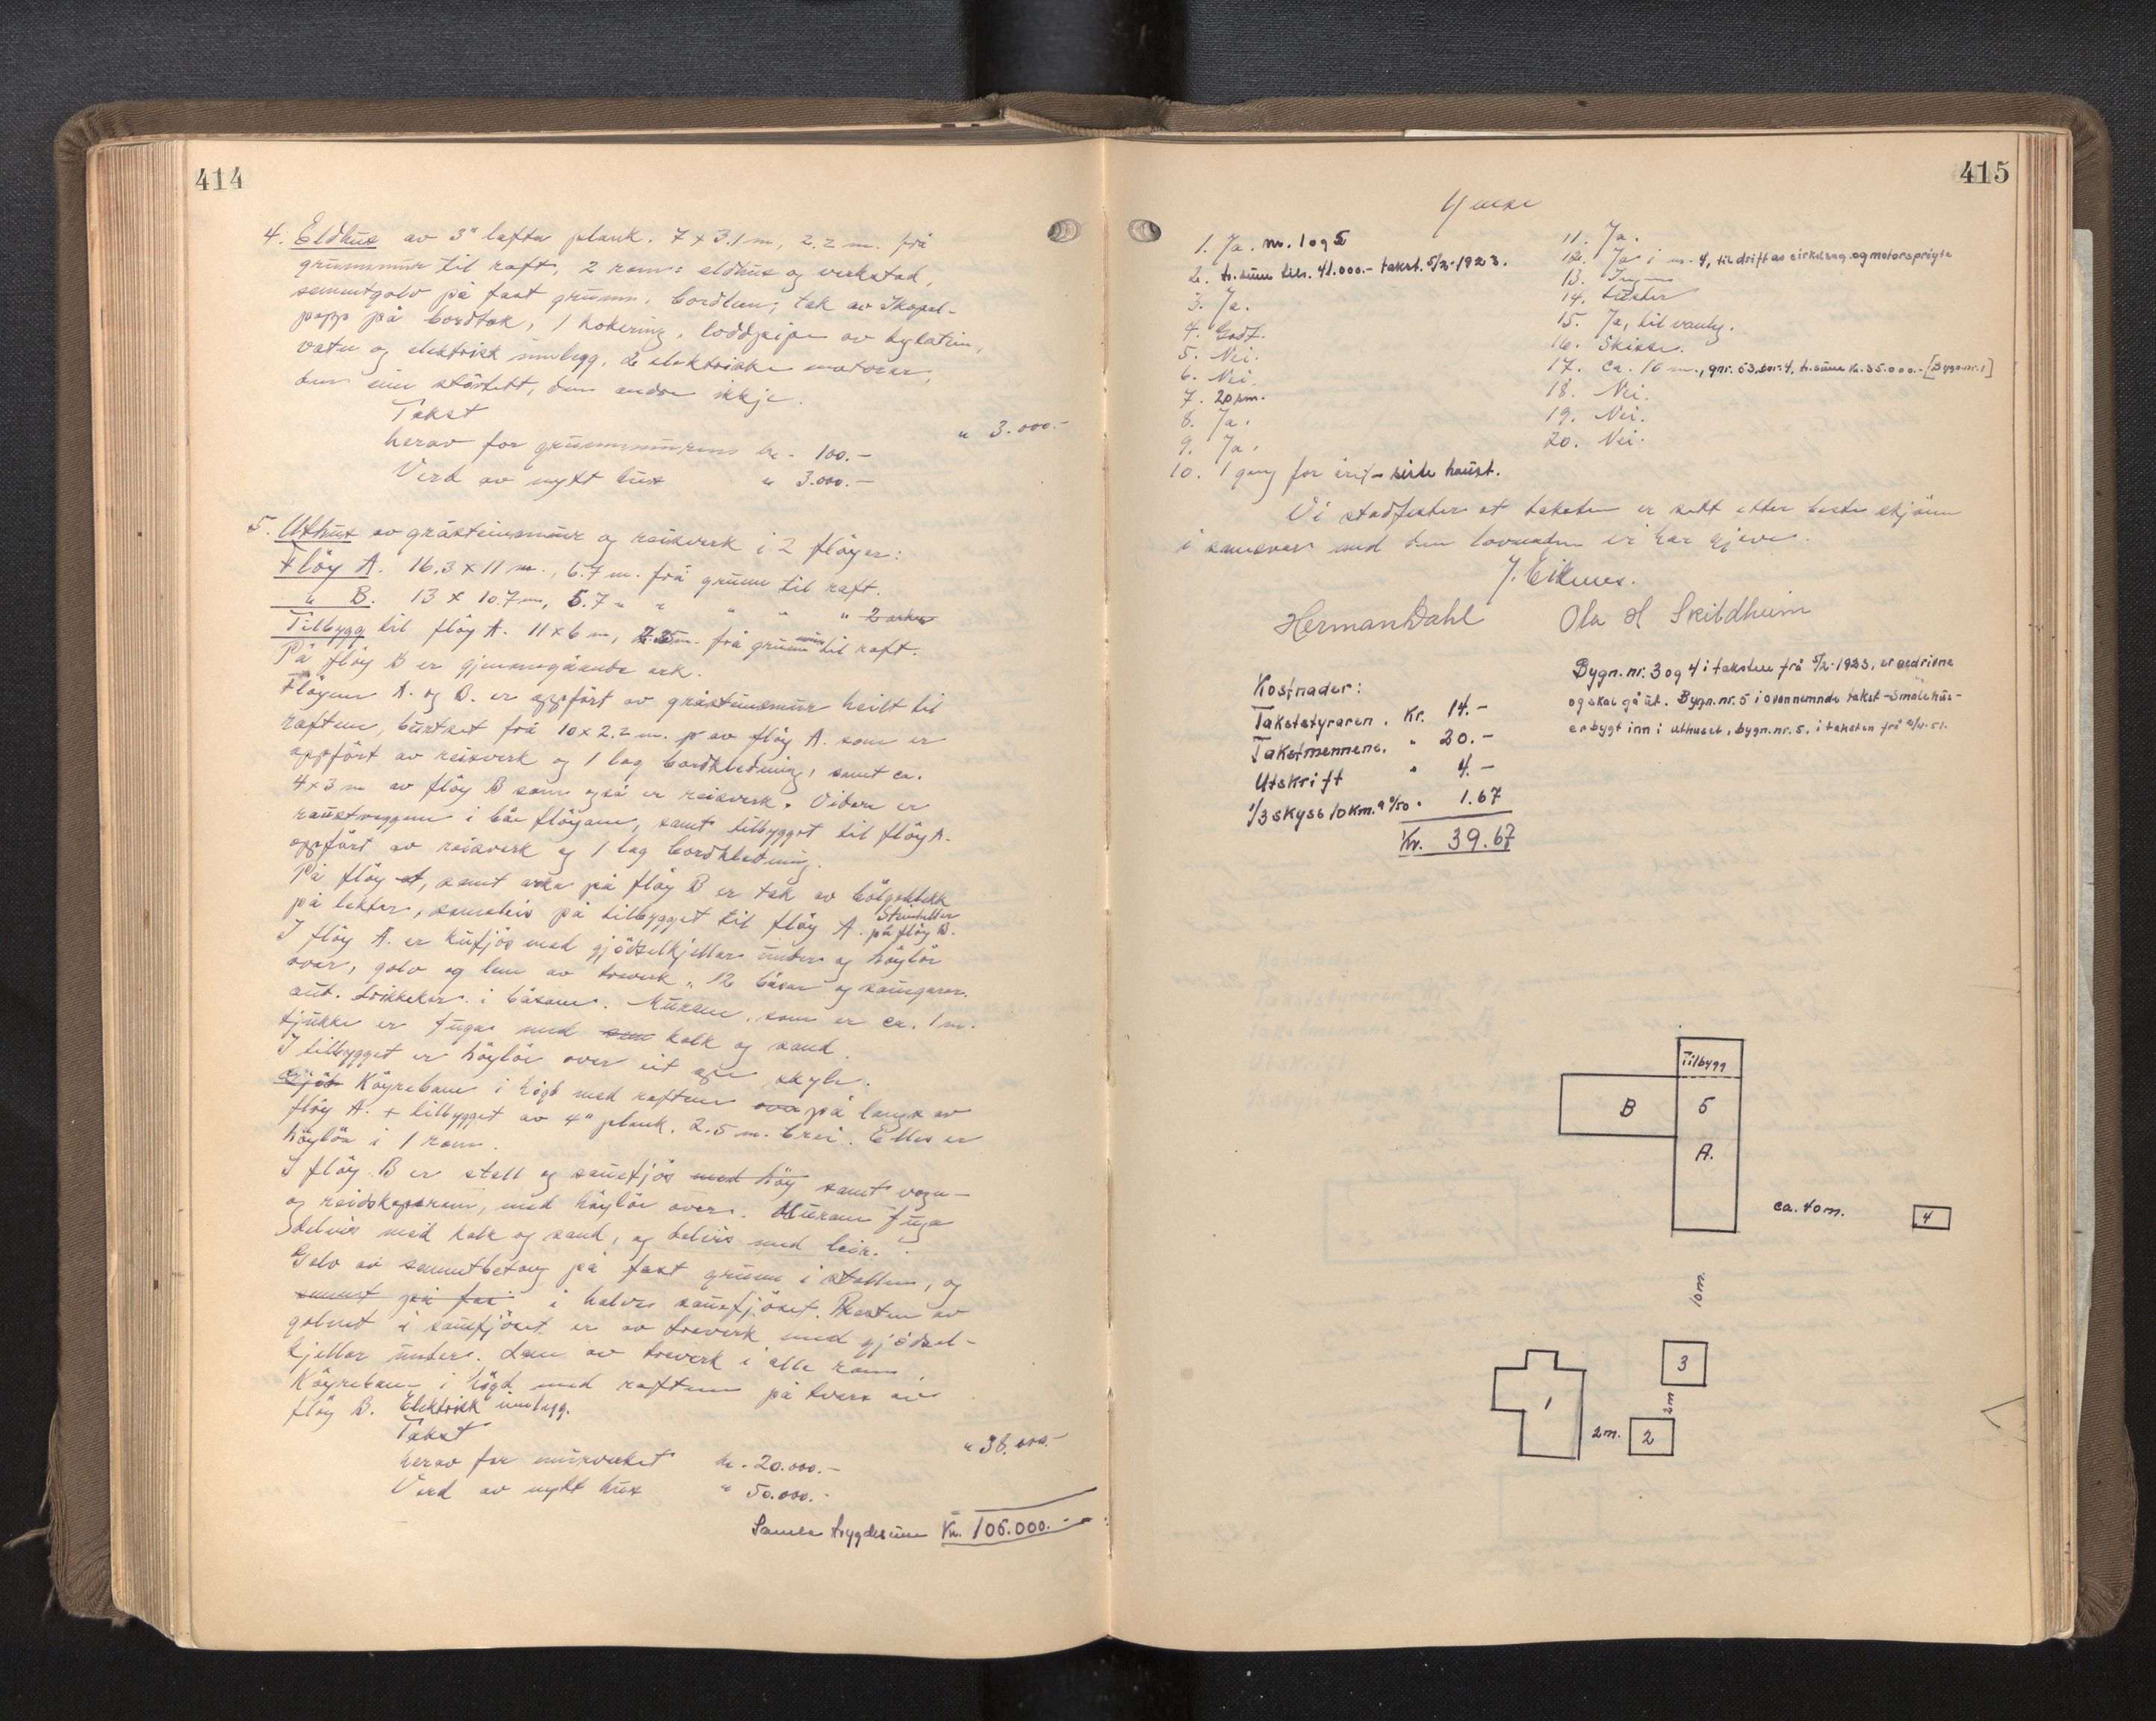 414
4. Eldhus av 3" lafta plank. 7 x 3.1 m, 2.2 m. frå
grunnmur til raft, 2 rom: eldhus og verkstad,
sementgolv på fast grunn, bordlem, tak av Skopal-
papp på bordtak, 1 kokering, loddpipe av hylstein,
vatn og elektrisk innlegg, 2 elektriske motorar,
den eine støvtett, den andre ikkje.
Takst " 3.000.-
herav for grunnmuren kr. 100.-
Verd av nytt hus " 3.000.-
5. Uthus av gråsteinsmur og reisverk i 2 fløyer:
Fløy A. 16.3 x 11 m., 6.7 m. frå grunn til raft.
" B. 13 x 10.7 m, 5.7 " " " " " 2 arker
Tilbygg til fløy A. 11 x 6 m, m. frå grunnmur til raft.
På fløy B er gjennomgåande ark.
Fløyene A. og B. er oppført av gråsteinsmur heilt til
raftene, burtset frå 10 x 2.2 m. p av fløy A. som er
oppført av reisverk og 1 lag bordkledning, samt ca.
4 x 3 m av fløy B som også er reisverk. Vidare er
raustveggene i båe fløyane, samt tilbygget til fløy A.
oppført av reisverk og 1 lag bordkledning.
På fløy A, samt arka på fløy B er tak av bølgeblekk
på lekter, sameleis på tilbygget til fløy A. Steinheller på fløy B.
I fløy A. er kufjøs med gjødselkjellar under og høyløe
over, golv og lem av treverk, 12 båsar og saugarar.
aut. drikkekar i båsane. Murane, som er ca. 1 m.
tjukke er fuga med sem kalk og sand.
I tilbygget er høyløe over eit ope skyle.
Gjöd Køyrebane i høgd med raftene ova på langs av
fløy A. + tilbygget av 4" plank. 2.5 m. brei. Elles er
høyløa i 1 rom.
I fløy B er stall og sauefjøs med høy samt vogn-
og reidskapsrom, med høyløe over. Murane fuga
delvis med kalk og sand, og delvis med leir.
Golv av sementbetong på fast grunn i stallen, og
sement på fas i halve sauefjøset. Resten av
golvet i sauefjøset er av treverk med gjødsel-
kjellar under. Lem av treverk i alle rom.
Køyrebane i høgd med raftene på tvers av
fløy B. Elektrisk innlegg.
Takst " 38.000.-
herav for murverket kr. 20.000.-
Verd av nytt hus " 50.000.-
Samla trygdesum Kr. 106.000.-
415
Ymse
1. Ja. nr. 1 og 5
2. tr.sum tils. 41.000.- takst. 5/2-1923.
3. Ja.
4. Godt.
5. Nei.
6. Nei.
7. 20 km.
8. Ja.
9. Ja.
10. 1 gong for året - siste haust.
11. Ja.
12. Ja i nr. 4, til drift av cirkelsag og motorsprøyte
13. Ingen
14. Lister
15. Ja, til vanleg.
16. Skisse.
17. Ca. 10 m., gnr. 53, bnr. 4, tr.sum kr. 35.000.- [Bygn.nr. 1]
18. Nei.
19. Nei.
20. Nei.
Vi stadfester at taksten er sett etter beste skjønn
i samsvar med den lovnaden vi har gjeve.
J. Eiknes.
Herman Dahl Ola H Skildheim
Kostnader:
Takststyraren. Kr. 14.-
Takstmennene. " 20.-
Utskrift " 4.-
1/3 skyss 10 km. a 0/50 " 1.67
Kr. 39.67
Bygn.nr. 3 og 4 i taksten frå 5/2-1923, er nedrivne
og skal gå ut. Bygn.nr. 5 i ovannemnde takst - Smalehus -
er bygt inn i uthuset, bygn.nr. 5, i taksten frå
Tilbygg
B
5
A.
ca. 40 m.
4
10 m.
3
2 m
1
2 m.
2